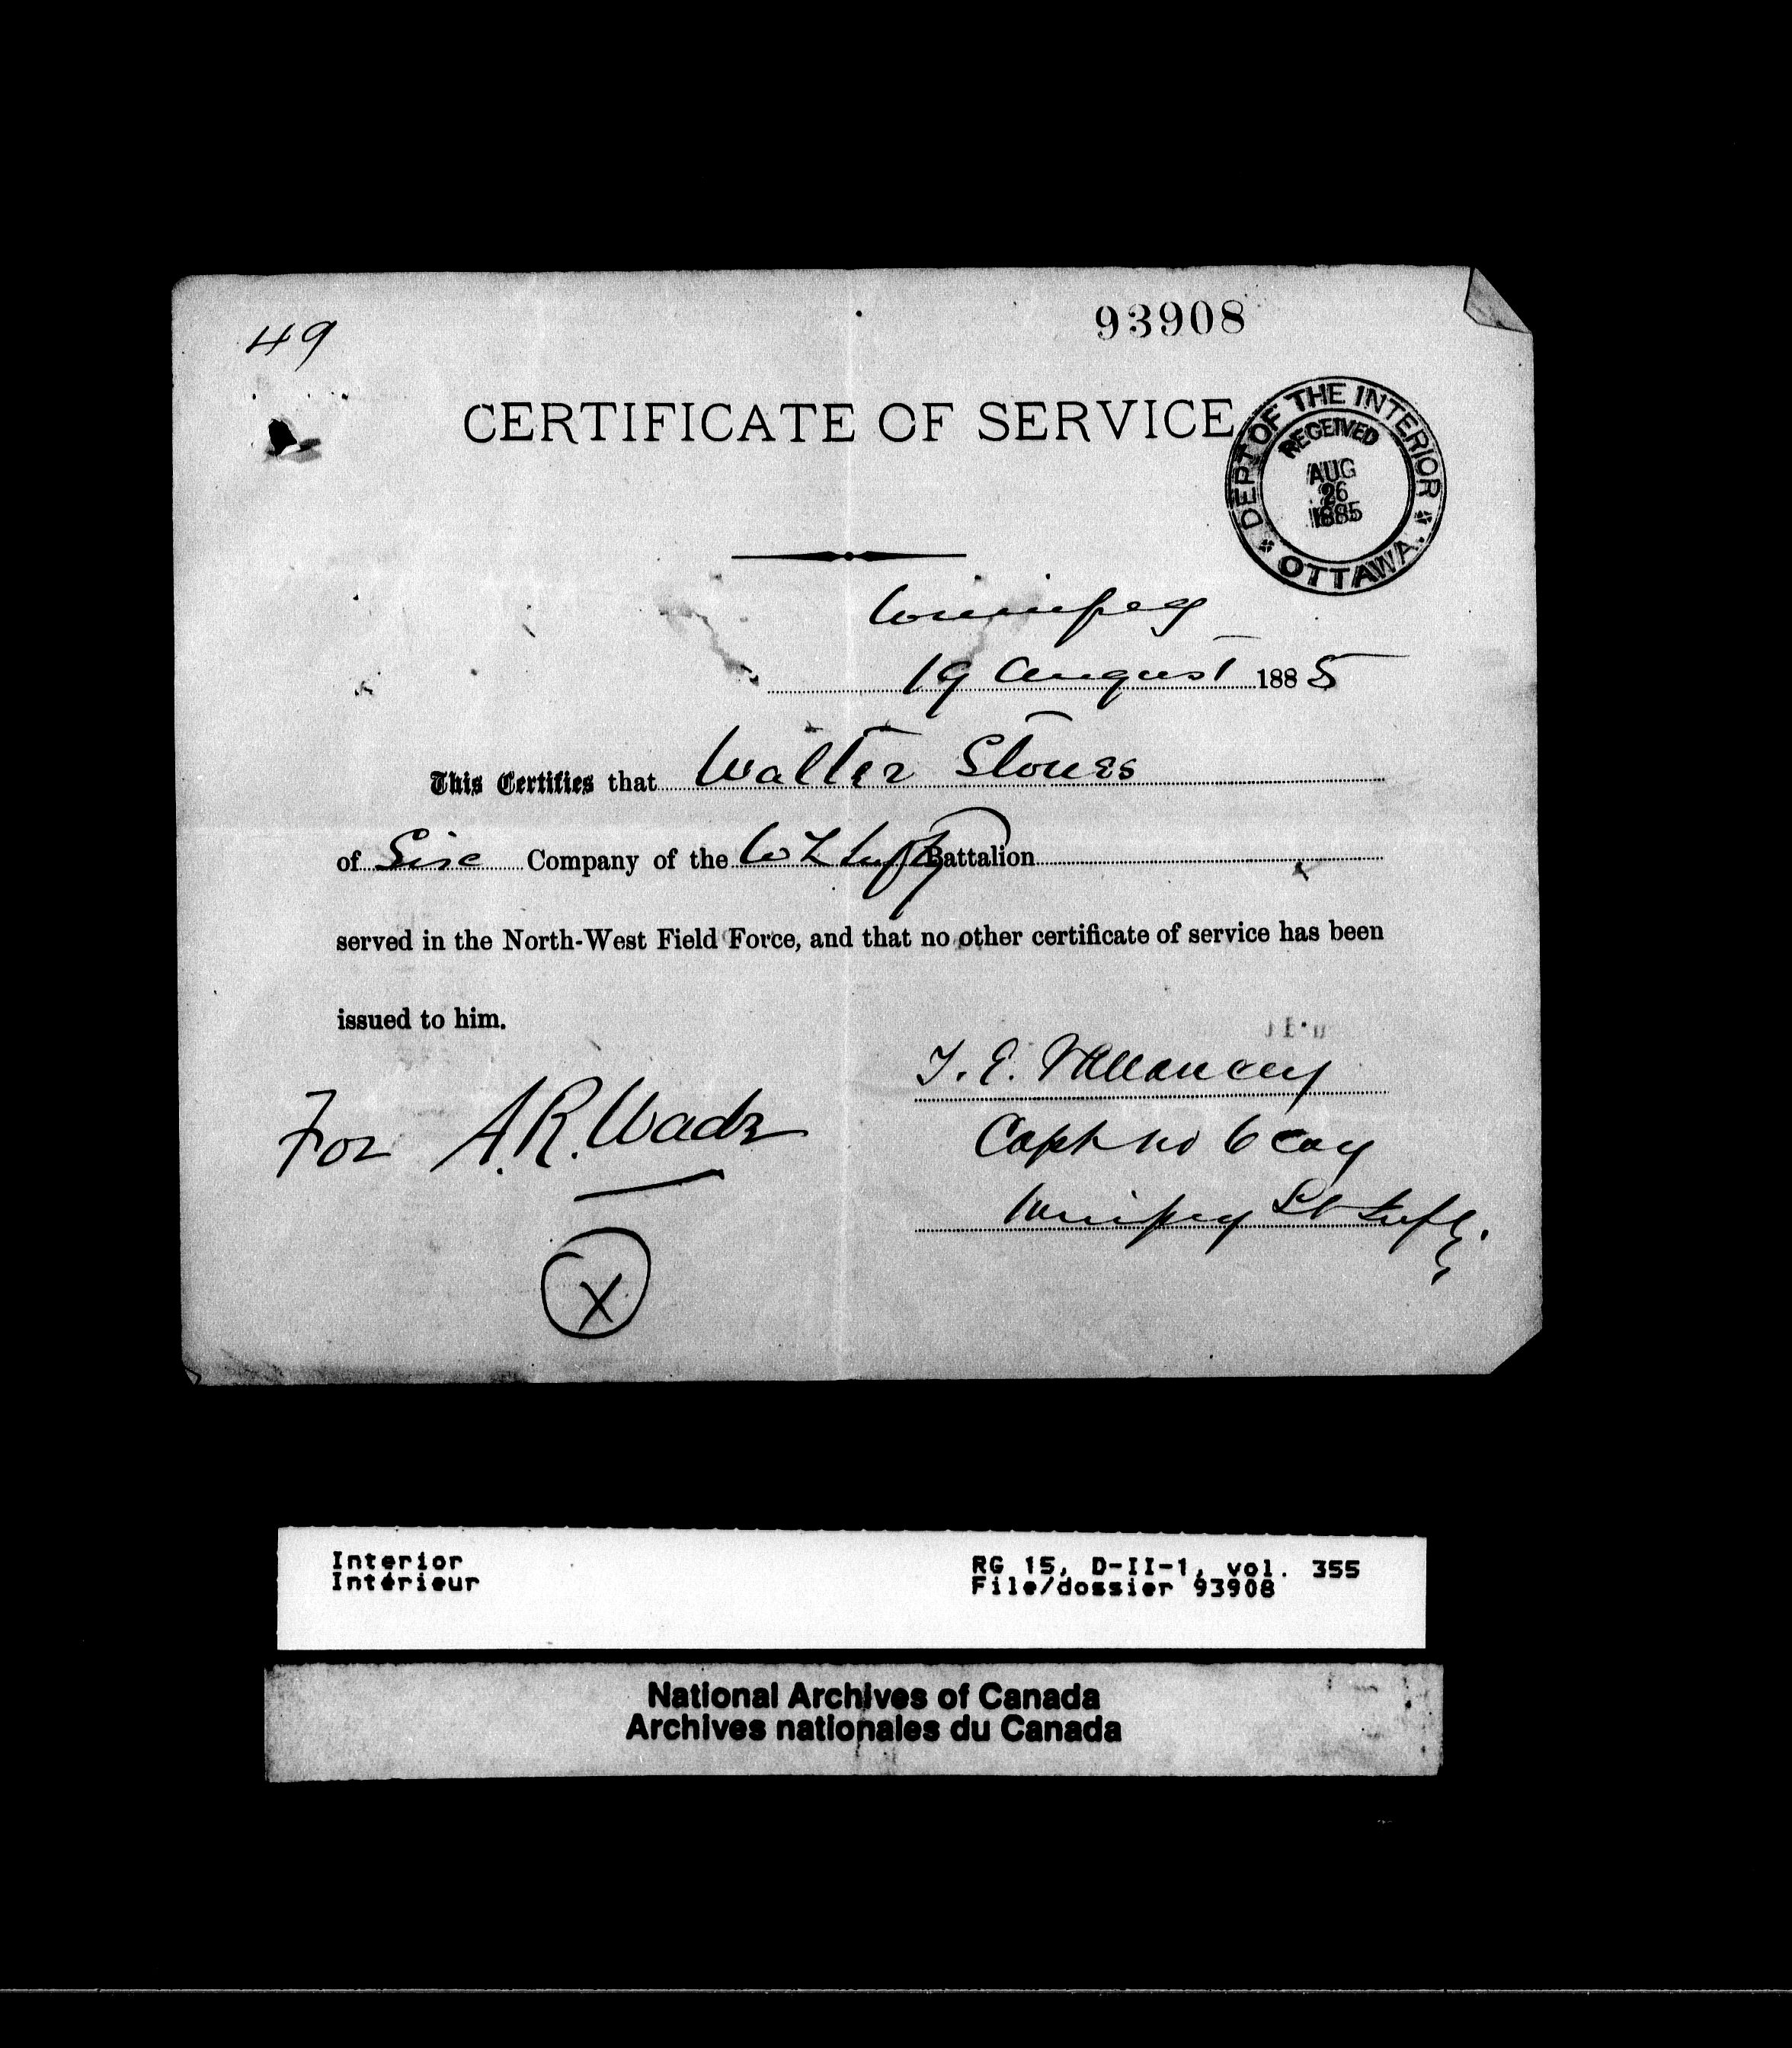 49
93908
CERTIFICATE OF SERVICE
DEPT OF THE INTERIOR
RECEIVED
AUG
26
1885
OTTAWA.
Winnipeg
19 August 1885
This Certifies that Walter Stones
of Six Company of the W L Infty Battalion
served in the North-West Field Force, and that no other certificate of service has been
issued to him.
T. E.
Capt no 6 Coy
Winnipeg Lt Infty.
For A.R. Wade
X
Interior
Intérieur
RG 15, D-II-1, vol. 355
File/dossier 93908
National Archives of Canada
Archives nationales du Canada